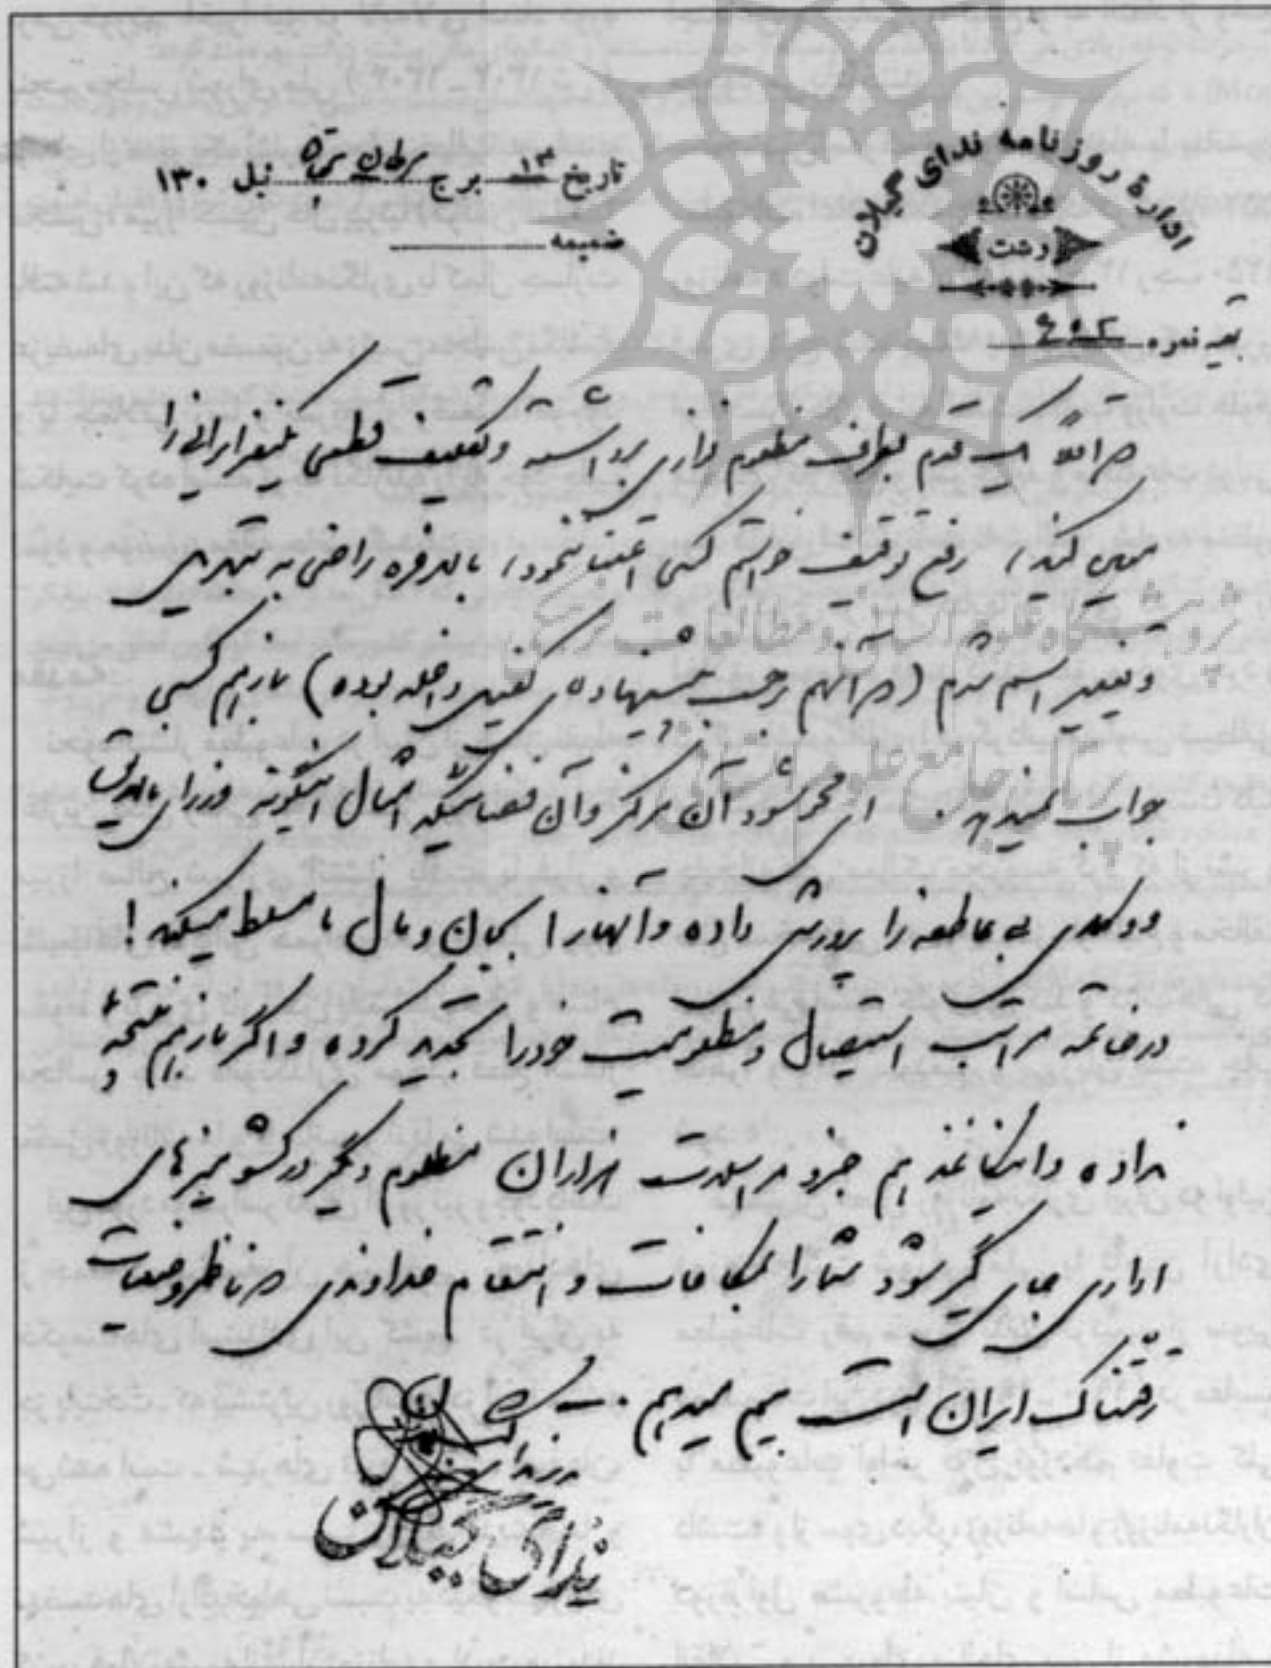 ادارهٔ روزنامه ندای گیلان
رشت
تاریخ ۱۳ برج سرطان ئیل ۱۳۰
ضمیمه
بقیه نمره ۶۵۲
یک قدم بطرف مظلوم نوازی برداشته و تکلیف قطعی یکنفر ایرانی را
معین کنید، رفع توقیف خواستم کسی اعتنا ننمود، بالاخره راضی به تبدیل
و تغییر اسم شدم (در آنهم بر حسب پیشنهاد کفیل داخله بوده) باز هم کسی
جواب نمیدهد. ای محو شود آن مرکز و آن فضائیکه امثال اینگونه وزرای
و وکلای بی عاطفه را پرورش داده و آنها را بجان و مال ما مسلط میکند!
در خاتمه مراتب استیصال و مظلومیت خود را تجدید کرده و اگر باز هم نتیجهٔ
نداده و اینکاغذ هم جزو مراسلات هزاران مظلوم دیگر در کشو میزهای
اداری جای گیر شود شما را بمکافات و انتقام خداوندی که ناظر وضعیات
رقتناک ایران است بیم میدهم.
ندای گیلان
پژوهشگاه علوم انسانی و مطالعات فرهنگی
پرتال جامع علوم انسانی